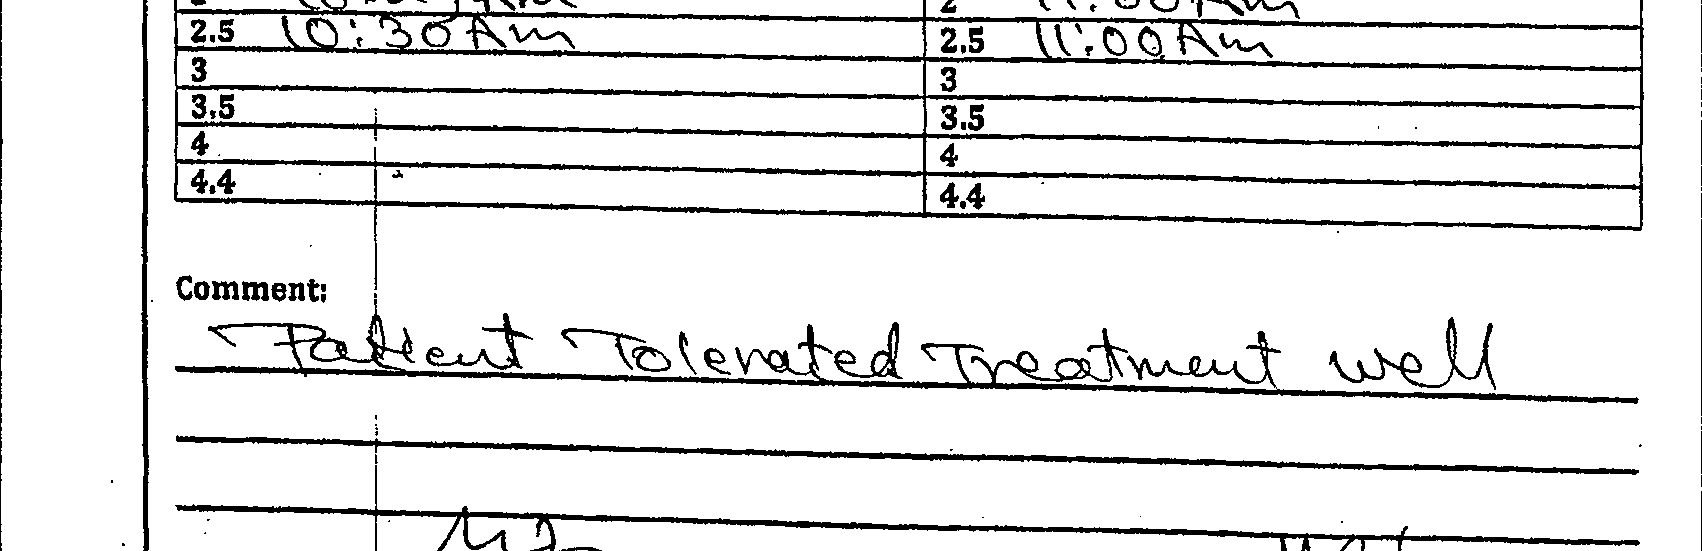 2 2 11:00 Am
2.5 10:30 Am 2.5 11:00 Am
3 3
3.5 3.5
4 4
4.4 4.4
Comment:
Patient Tolerated Treatment well